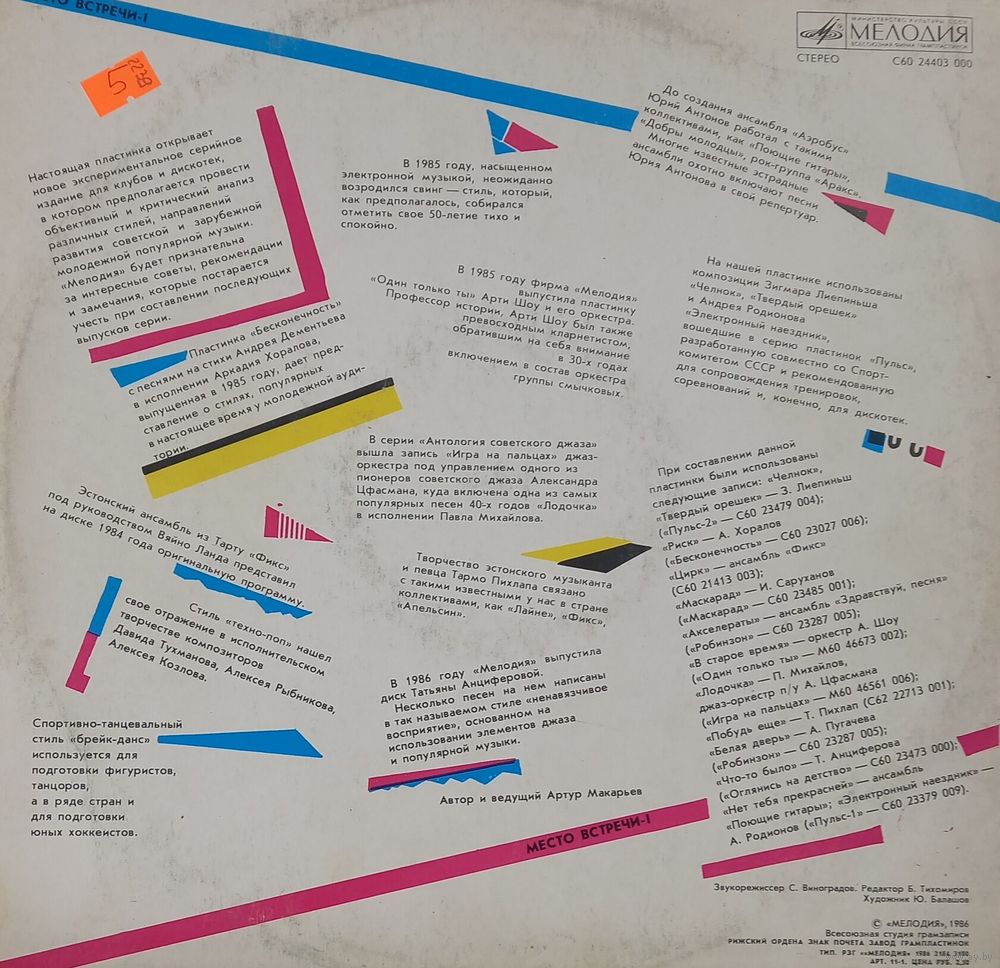 МЕСТО ВСТРЕЧИ-I
МИНИСТЕРСТВО КУЛЬТУРЫ СССР
МЕЛОДИЯ
ВСЕСОЮЗНАЯ ФИРМА ГРАМПЛАСТИНОК
СТЕРЕО С60 24403 000
2239
5
Настоящая пластинка открывает
новое экспериментальное серийное
издание для клубов и дискотек,
в котором предполагается провести
объективный и критический анализ
различных стилей, направлений
развития советской и зарубежной
молодежной популярной музыки.
«Мелодия» будет признательна
за интересные советы, рекомендации
и замечания, которые постарается
учесть при составлении последующих
выпусков серии.
Пластинка «Бесконечность»
с песнями на стихи Андрея Дементьева
в исполнении Аркадия Хоралова,
выпущенная в 1985 году, дает пред-
ставление о стилях, популярных
в настоящее время у молодежной ауди-
тории.
Эстонский ансамбль из Тарту «Фикс»
под руководством Вяйно Ланда представил
на диске 1984 года оригинальную программу.
Стиль «техно-поп» нашел
свое отражение в исполнительском
творчестве композиторов
Давида Тухманова, Алексея Рыбникова,
Алексея Козлова.
Спортивно-танцевальный
стиль «брейк-данс»
используется для
подготовки фигуристов,
танцоров,
а в ряде стран и
для подготовки
юных хоккеистов.
В 1985 году, насыщенном
электронной музыкой, неожиданно
возродился свинг — стиль, который,
как предполагалось, собирался
отметить свое 50-летие тихо и
спокойно.
В 1985 году фирма «Мелодия»
выпустила пластинку
«Один только ты» Арти Шоу и его оркестра.
Профессор истории, Арти Шоу был также
превосходным кларнетистом,
обратившим на себя внимание
в 30-х годах
включением в состав оркестра
группы смычковых.
В серии «Антология советского джаза»
вышла запись «Игра на пальцах» джаз-
оркестра под управлением одного из
пионеров советского джаза Александра
Цфасмана, куда включена одна из самых
популярных песен 40-х годов «Лодочка»
в исполнении Павла Михайлова.
Творчество эстонского музыканта
и певца Тармо Пихлапа связано
с такими известными у нас в стране
коллективами, как «Лайне», «Фикс»,
«Апельсин».
В 1986 году «Мелодия» выпустила
диск Татьяны Анциферовой.
Несколько песен на нем написаны
в так называемом стиле «ненавязчивое
восприятие», основанном на
использовании элементов джаза
и популярной музыки.
Автор и ведущий Артур Макарьев
До создания ансамбля «Аэробус»
Юрий Антонов работал с такими
коллективами, как «Поющие гитары»,
«Добры молодцы», рок-группа «Аракс».
Многие известные эстрадные
ансамбли охотно включают песни
Юрия Антонова в свой репертуар.
На нашей пластинке использованы
композиции Зигмара Лиепиньша
«Челнок», «Твердый орешек»
и Андрея Родионова
«Электронный наездник»,
вошедшие в серию пластинок «Пульс»,
разработанную совместно со Спорт-
комитетом СССР и рекомендованную
для сопровождения тренировок,
соревнований и, конечно, для дискотек.
При составлении данной
пластинки были использованы
следующие записи: «Челнок»,
«Твердый орешек» — З. Лиепиньш
(«Пульс-2» — С60 23479 004);
«Риск» — А. Хоралов
(«Бесконечность» — С60 23027 006);
«Цирк» — ансамбль «Фикс»
(С60 21413 003);
«Маскарад» — И. Саруханов
(«Маскарад» — С60 23485 001);
«Акселераты» — ансамбль «Здравствуй, песня»
(«Робинзон» — С60 23287 005);
«В старое время» — оркестр А. Шоу
(«Один только ты» — М60 46673 002);
«Лодочка» — П. Михайлов,
джаз-оркестр п/у А. Цфасмана
(«Игра на пальцах» — М60 46561 006);
«Побудь еще» — Т. Пихлап (С62 22713 001);
«Белая дверь» — А. Пугачева
(«Робинзон» — С60 23287 005);
«Что-то было» — Т. Анциферова
(«Оглянись на детство» — С60 23473 000);
«Нет тебя прекрасней» — ансамбль
«Поющие гитары»; «Электронный наездник» —
А. Родионов («Пульс-1» — С60 23379 009).
МЕСТО ВСТРЕЧИ-I
Звукорежиссер С. Виноградов. Редактор Б. Тихомиров
Художник Ю. Балашов
© «МЕЛОДИЯ», 1986
Всесоюзная студия грамзаписи
РИЖСКИЙ ОРДЕНА ЗНАК ПОЧЕТА ЗАВОД ГРАМПЛАСТИНОК
ТИП. РЗГ «МЕЛОДИЯ» 1986
АРТ. 11-1. ЦЕНА РУБ.